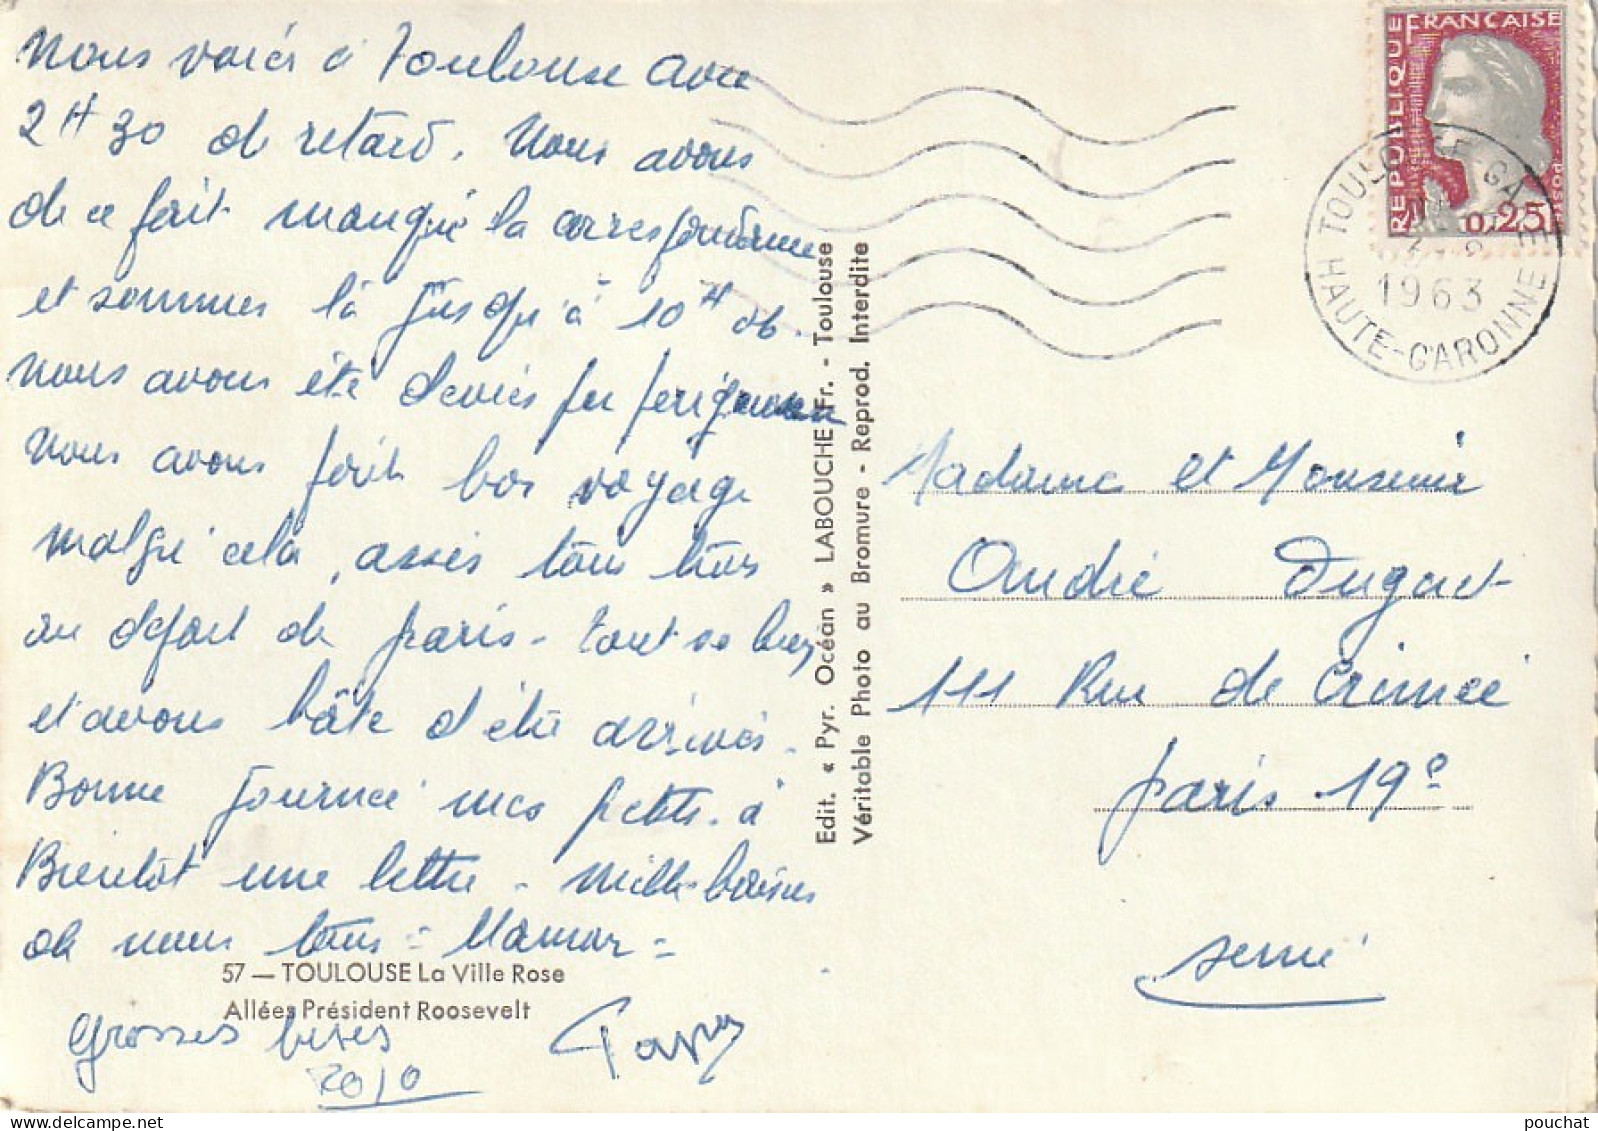 Nous voici à Toulouse avec
2H30 de retard. Nous avons
de ce fait manqué la correspondance
et sommes là jusqu'à 10H
nous avons été deviés par perigueux
Nous avons fait bon voyage
malgré cela, assis tous trois
au départ de paris - tout va bien
et avons hâte d'être arrivés -
Bonne journée mes petits. à
Bientôt une lettre - mille baisers
de nous tous = Maman =
57 — TOULOUSE La Ville Rose
Allées Président Roosevelt
Grosses bises
Papy
Edit. « Pyr. Océan » LABOUCHE Fr. - Toulouse
Véritable Photo au Bromure - Reprod. Interdite
REPUBLIQUE FRANÇAISE
0,25
TOULOUSE GARE
1963
HTE HAUTE-GARONNE
Madame et Monsieur
André Dugact
111 Rue de Crimée
paris 19e
seine
pouchat